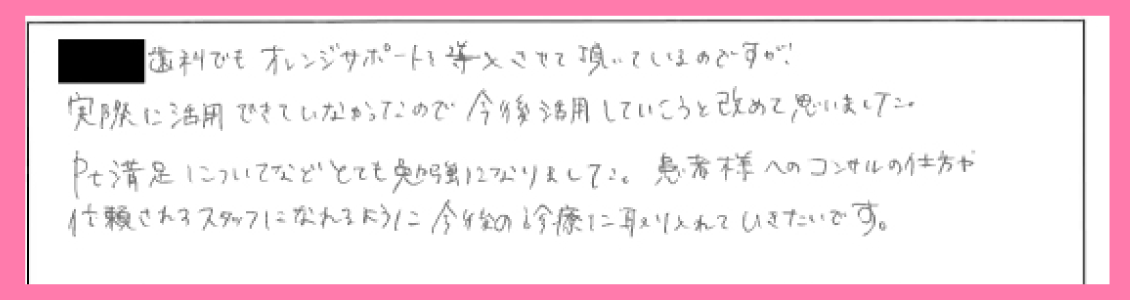 歯科でもオレンジサポートを導入させて頂いているのですが、
実際に活用できていなかったので今後活用していこうと改めて思いました。
Pt満足についてなどとても勉強になりました。患者様へのコンサルの仕方や
信頼されるスタッフになれるように今後の診療に取り入れていきたいです。